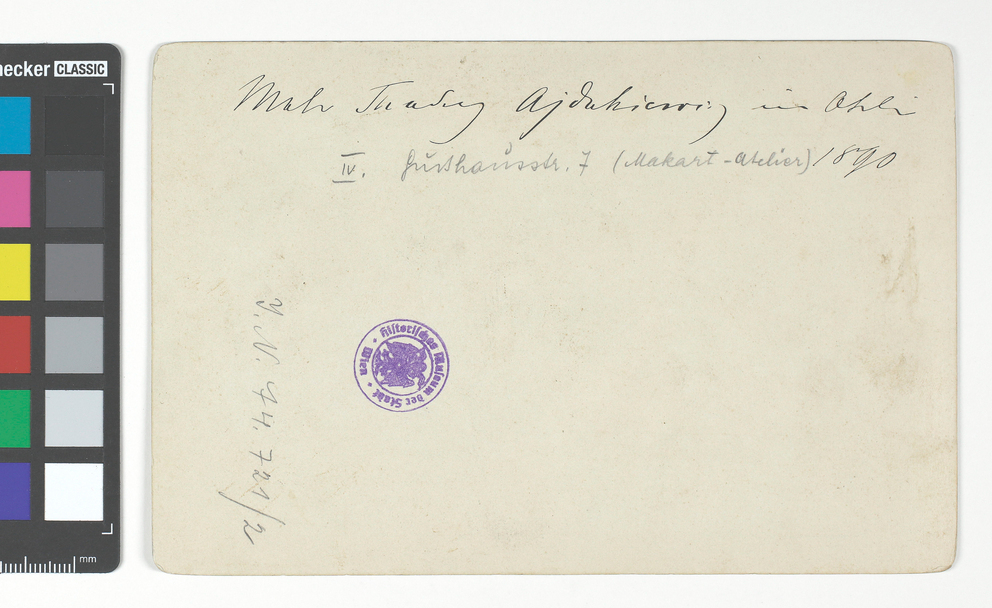 Maler Thadeus Ajdukiewicz im Atelier
IV. Gußhausstr. 7 (Makart-Atelier) 1890
J. N. 74.721/2
Historisches Museum der Stadt Wien
ecker CLASSIC
mm